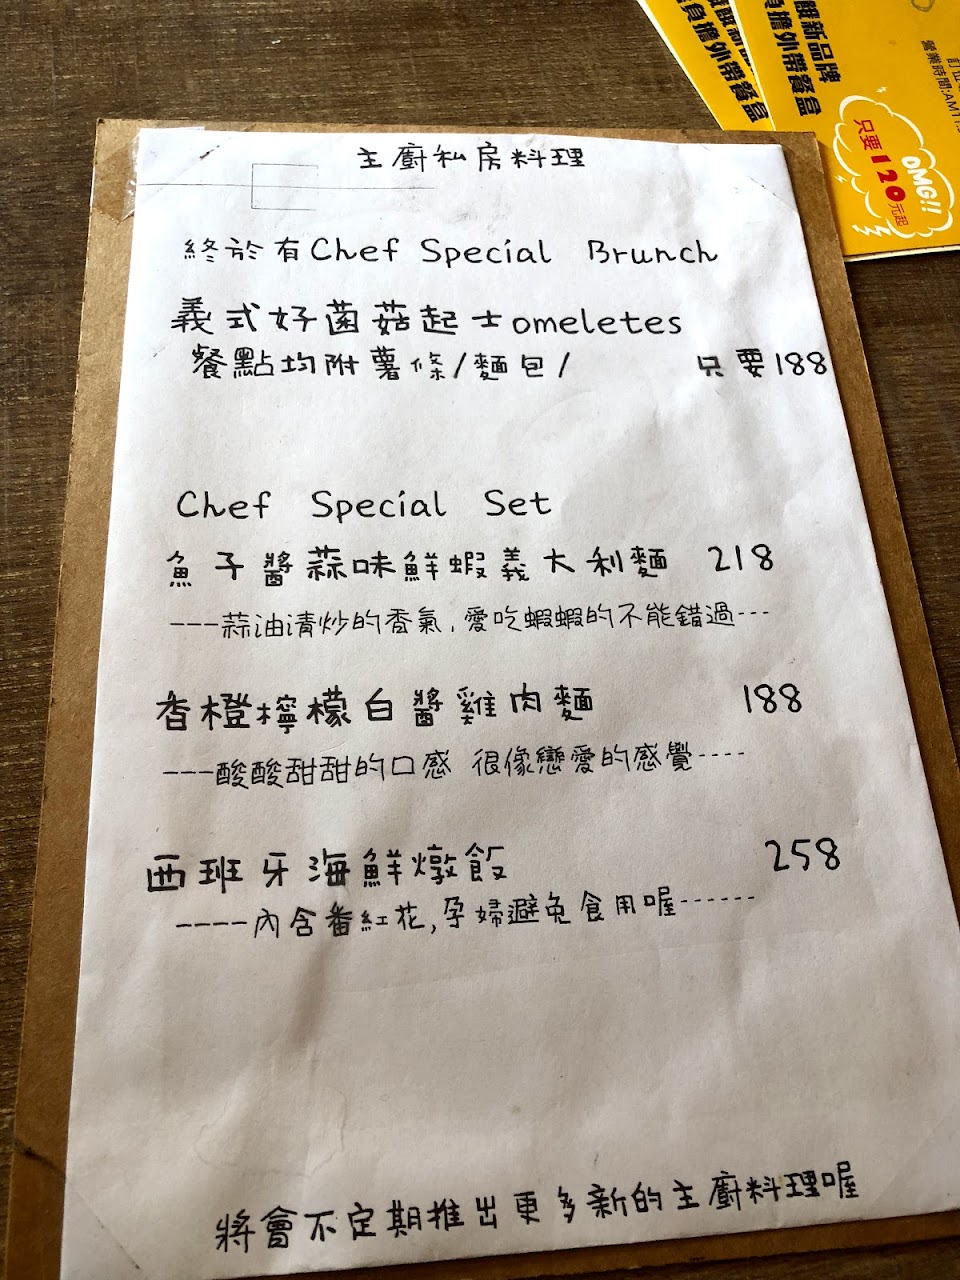 主廚私房料理
終於有Chef Special Brunch
義式好菌菇起士omeletes
餐點均附薯條/麵包/ 只要188
Chef Special Set
魚子醬蒜味鮮蝦義大利麵 218
---蒜油清炒的香氣,愛吃蝦蝦的不能錯過---
香橙檸檬白醬雞肉麵 188
---酸酸甜甜的口感 很像戀愛的感覺----
西班牙海鮮燉飯 258
----內含番紅花,孕婦避免食用喔------
將會不定期推出更多新的主廚料理喔
新品牌
負擔外帶餐盒
新品牌
負擔外帶餐盒
營業時間:AM11
只要120元起
OMG!!